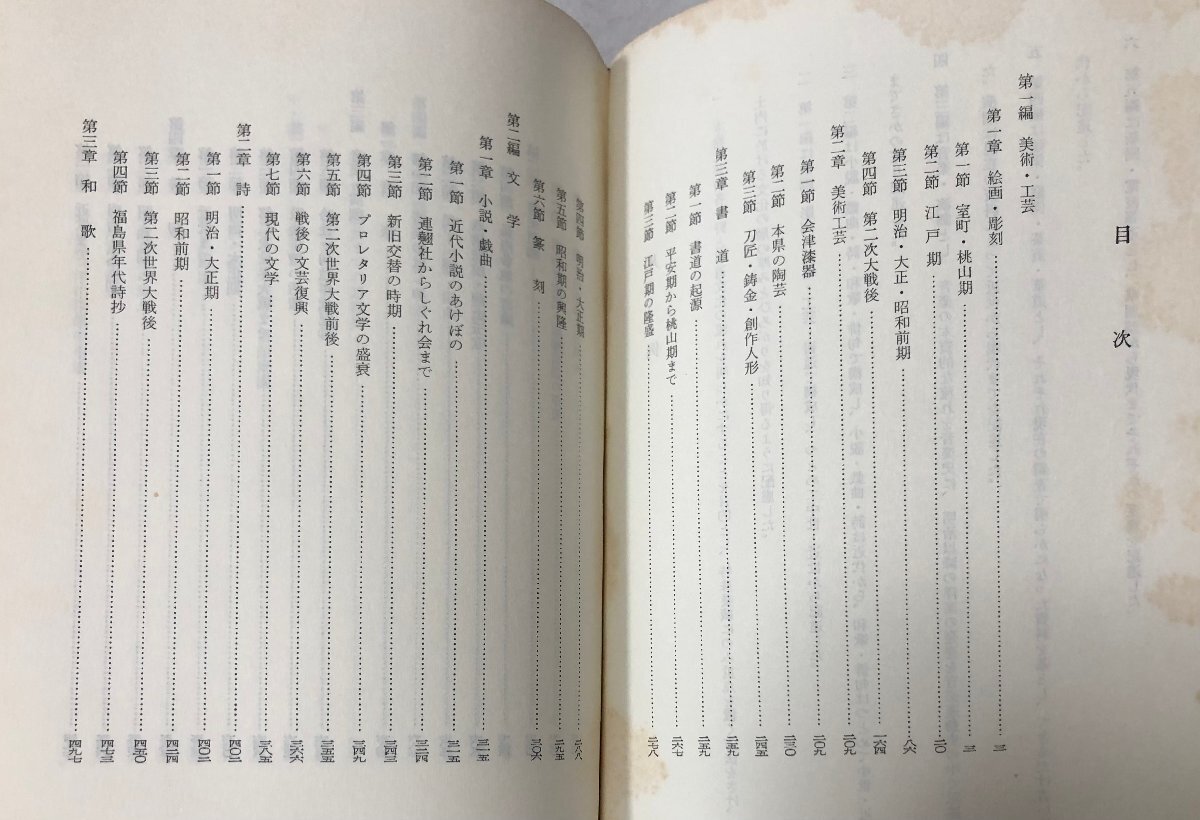 目次
第一編 美術・工芸
第一章 絵画・彫刻……三
第一節 室町・桃山期……三
第二節 江戸期……二〇
第三節 明治・大正・昭和前期……八六
第四節 第二次大戦後……一六四
第二章 美術工芸……二〇九
第一節 会津漆器……二〇九
第二節 本県の陶芸……二三〇
第三節 刀匠・鋳金・創作人形……二四五
第三章 書道……二五九
第一節 書道の起源……二五九
第二節 平安期から桃山期まで……二六七
第三節 江戸期の隆盛……二七八
第四節 明治・大正期……二八八
第五節 昭和期の興隆……二九五
第六節 篆刻……三〇六
第二編 文学
第一章 小説・戯曲……三一五
第一節 近代小説のあけぼの……三一五
第二節 連翹社からしぐれ会まで……三二四
第三節 新旧交替の時期……三四三
第四節 プロレタリア文学の盛衰……三四九
第五節 第二次世界大戦前後……三五五
第六節 戦後の文芸復興……三六六
第七節 現代の文学……三八五
第二章 詩……四〇二
第一節 明治・大正期……四〇二
第二節 昭和前期……四二四
第三節 第二次世界大戦後……四五〇
第四節 福島県年代詩抄……四七三
第三章 和歌……四九七